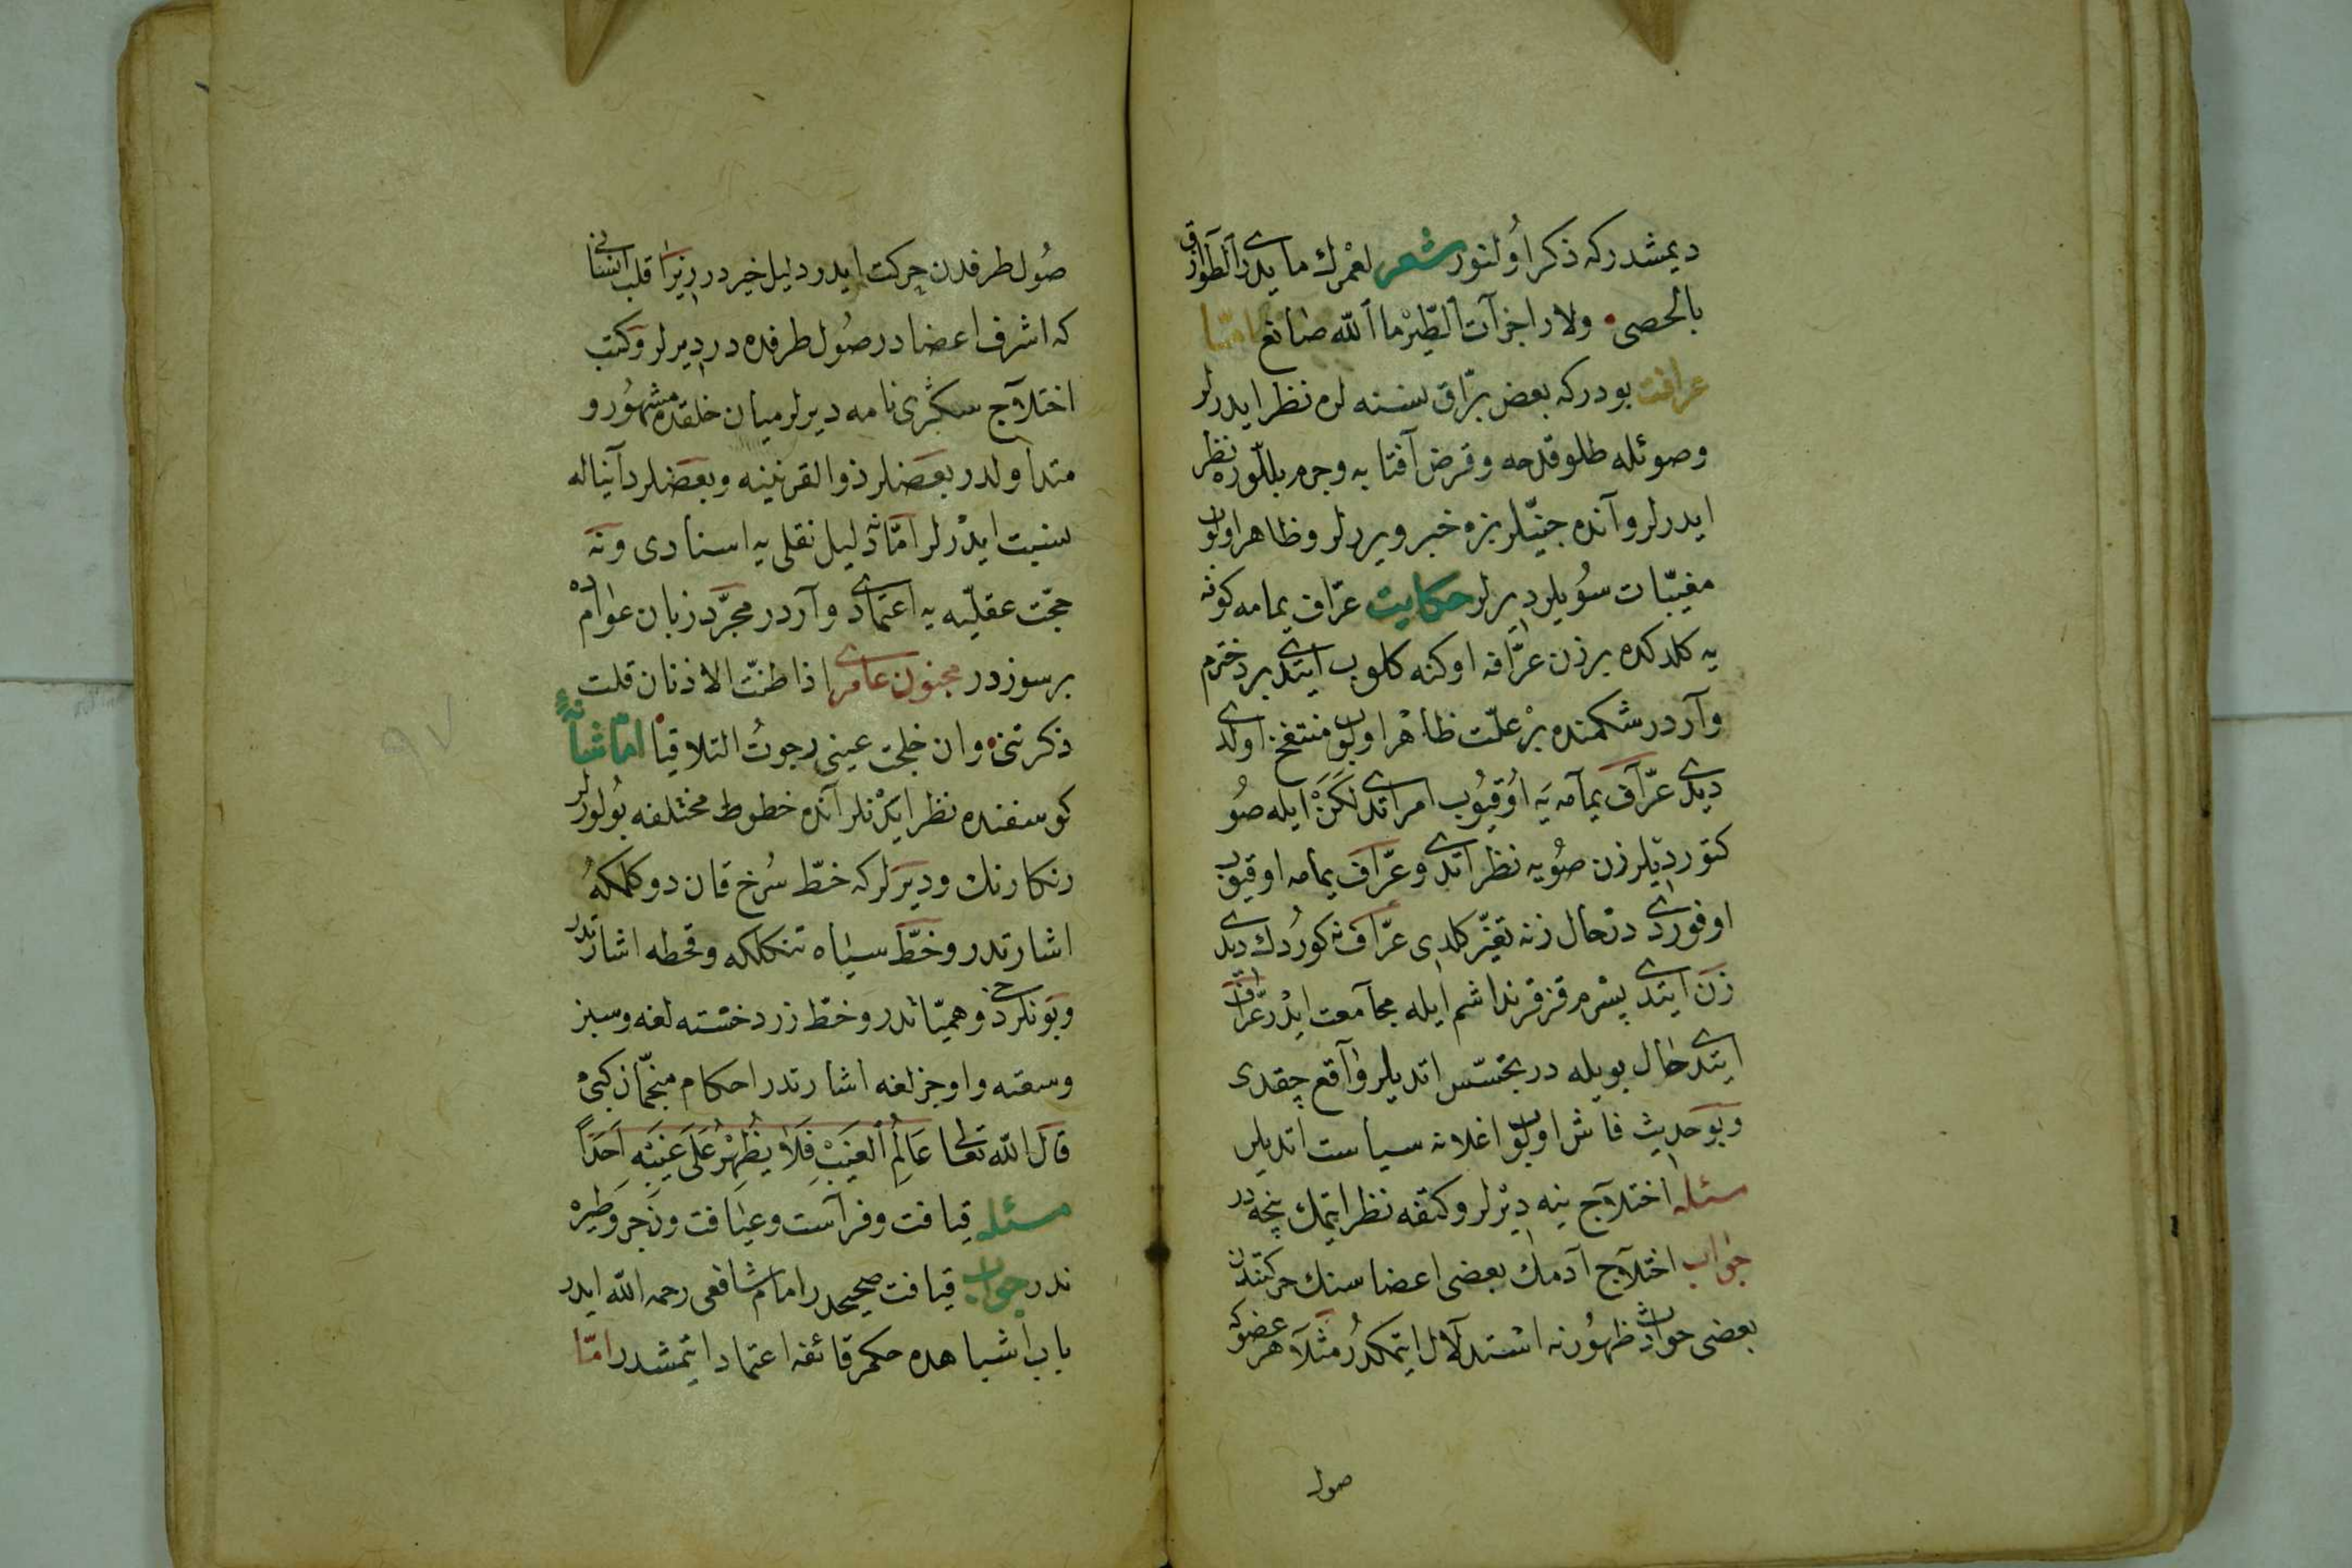 ديمشدركه ذكر اولنور شعر لعمرك ما يدري الطوارق
بالحصى ولا زاجرآت الطير ما الله صانع امّا
عرافت بودركه بعض برّاق نسنه لره نظر ايدرلر
وصوئله طلو قدحه وقرض آفتابه وجرم بللوره نظر
ايدرلر وآنده جنّيلر بزه خبر ويررلر وظاهر اولوب
مغيّبات سويلر ديرلر حكايت عرّاف يمامه كوفه
يه كلدكده بر زن عرّافه اوكنه كلوب ايتدى بر دخترم
وآردر شكمنده بر علّت ظاهر اولوب منتفخ اولدى
ديدى عرّاف يمامه يه اوقيوب امر اتدى لكن ايله صو
كتورديلر زن صويه نظر اتدى وعرّاف يمامه اوقيوب
اوفوردى درحال زنه تغيّر كلدى عرّاف نه كوردك ديدى
زن ايتدى پسرم قز قرنداشم ايله مجامعت ايدر عرّاف
ايتدى حال بويله در تجسّس اتديلر واقع چقدى
وبو حديث فاش اولوب اغلانه سياست اتديلر
مسئله اختلاج نيه ديرلر وكتفه نظر ايتمك نيجه در
جواب اختلاج آدمك بعضى اعضاسنك حركتندن
بعضى حوادث ظهورنه استدلال ايتمكدر مثلا هر عضوكه
صول
صول طرفدن حركت ايدر دليل خيردر زيرا قلب انسانى
كه اشرف اعضادر صول طرفده در ديرلر وكتب
اختلاج سكرى نامه ديرلر ميان خلقده مشهور و
متداولدر بعضلر ذو القرنينه وبعضلر دآنياله
نسبت ايدرلر امّا نه دليل نقلى يه اسنادى ونه
حجّت عقليّه يه اعتمادى واردر مجرّد زبان عوامده
بر سوزدر مجنون عامرى اذا طنّت الاذنان قلت
ذكرتنى وان خلجت عينى رجوت التلاقيا امّا شانه
كوسفنده نظر ايدنلر آنده خطوط مختلفه بولورلر
رنكارنك وديرلركه خطّ سرخ قان دوكلمكه
اشارتدر وخطّ سياه تنكلكه وقحطه اشارتدر
وبونلر دخى وهميّاتدر وخطّ زرد خسته لغه وسبز
وسعته واوجزلغه اشارتدر احكام منجّمان كبى
قال الله تعالى عالم الغيب فلا يظهر على غيبه احدا
مسئله قيافت وفرآست وعيافت وزجر وطيره
ندر جواب قيافت صحيحدر امام شافعى رحمه الله ايدر
باب اشباهده حكم قائفه اعتماد ايتمشدر امّا